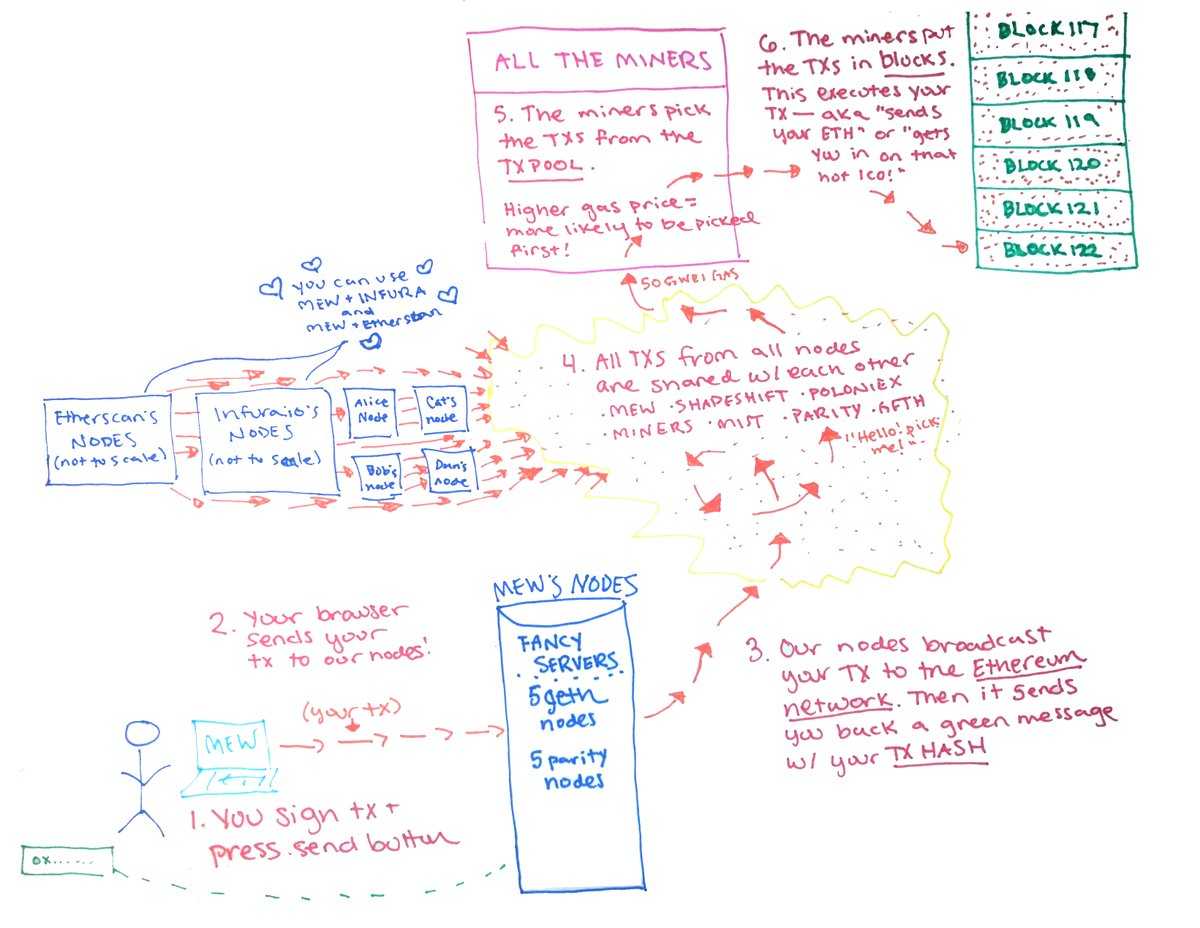 ALL THE MINERS
5. The miners pick
the TXs from the
TXPOOL.
Higher gas price =
more likely to be picked
first!
6. The miners put
the TXs in blocks.
This executes your
TX — aka "sends
your ETH" or "gets
you in on that
hot ICO!"
BLOCK 117
BLOCK 118
BLOCK 119
BLOCK 120
BLOCK 121
BLOCK 122
50 GWEI GAS
you can use
MEW + INFURA
and
MEW + Etherscan
Etherscan's
NODES
(not to scale)
Infura.io's
NODES
(not to scale)
Alice
Node
Cat's
node
Bob's
node
Dan's
node
4. All TXs from all nodes
are shared w/ each other
· MEW · SHAPESHIFT · POLONIEX
· MINERS · MIST · PARITY · GETH
"Hello! pick
me!"
MEW'S NODES
FANCY
SERVERS
5 geth
nodes
5 parity
nodes
2. Your browser
sends your
tx to our nodes!
(your tx)
MEW
1. You sign tx +
press send button
0x......
3. Our nodes broadcast
your TX to the Ethereum
network. Then it sends
you back a green message
w/ your TX HASH